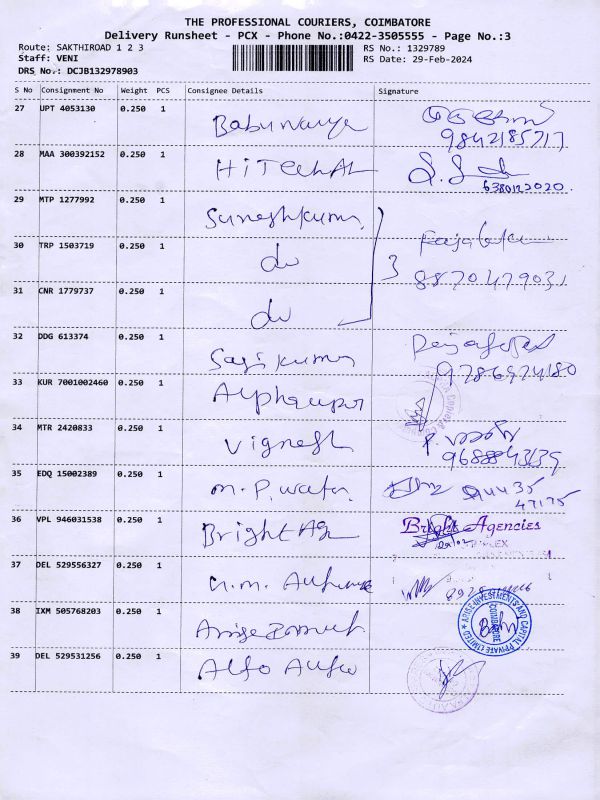 THE PROFESSIONAL COURIERS, COIMBATORE
Delivery Runsheet - PCX - Phone No.:0422-3505555 - Page No.:3
Route: SAKTHIROAD 1 2 3 RS No.: 1329789
Staff: VENI RS Date: 29-Feb-2024
DRS No.: DCJB132978903
S No Consignment No Weight PCS Consignee Details Signature
27 UPT 4053130 0.250 1
9842185717
28 MAA 300392152 0.250 1 HiTech
6380122020.
29 MTP 1277992 0.250 1 Sureshkumar
30 TRP 1503719 0.250 1 do
3 8870479031
31 CNR 1779737 0.250 1 do
32 DDG 613374 0.250 1
9786974180
33 KUR 7001002460 0.250 1
34 MTR 2420833 0.250 1 Vignesh
35 EDQ 15002389 0.250 1 M.P. water
94435
47175
36 VPL 946031538 0.250 1 Bright Ag Bright Agencies
37 DEL 529556327 0.250 1
38 IXM 505768203 0.250 1 Arise
ARISE INVESTMENTS AND CAPITAL PRIVATE LIMITED
COIMBATORE
39 DEL 529531256 0.250 1